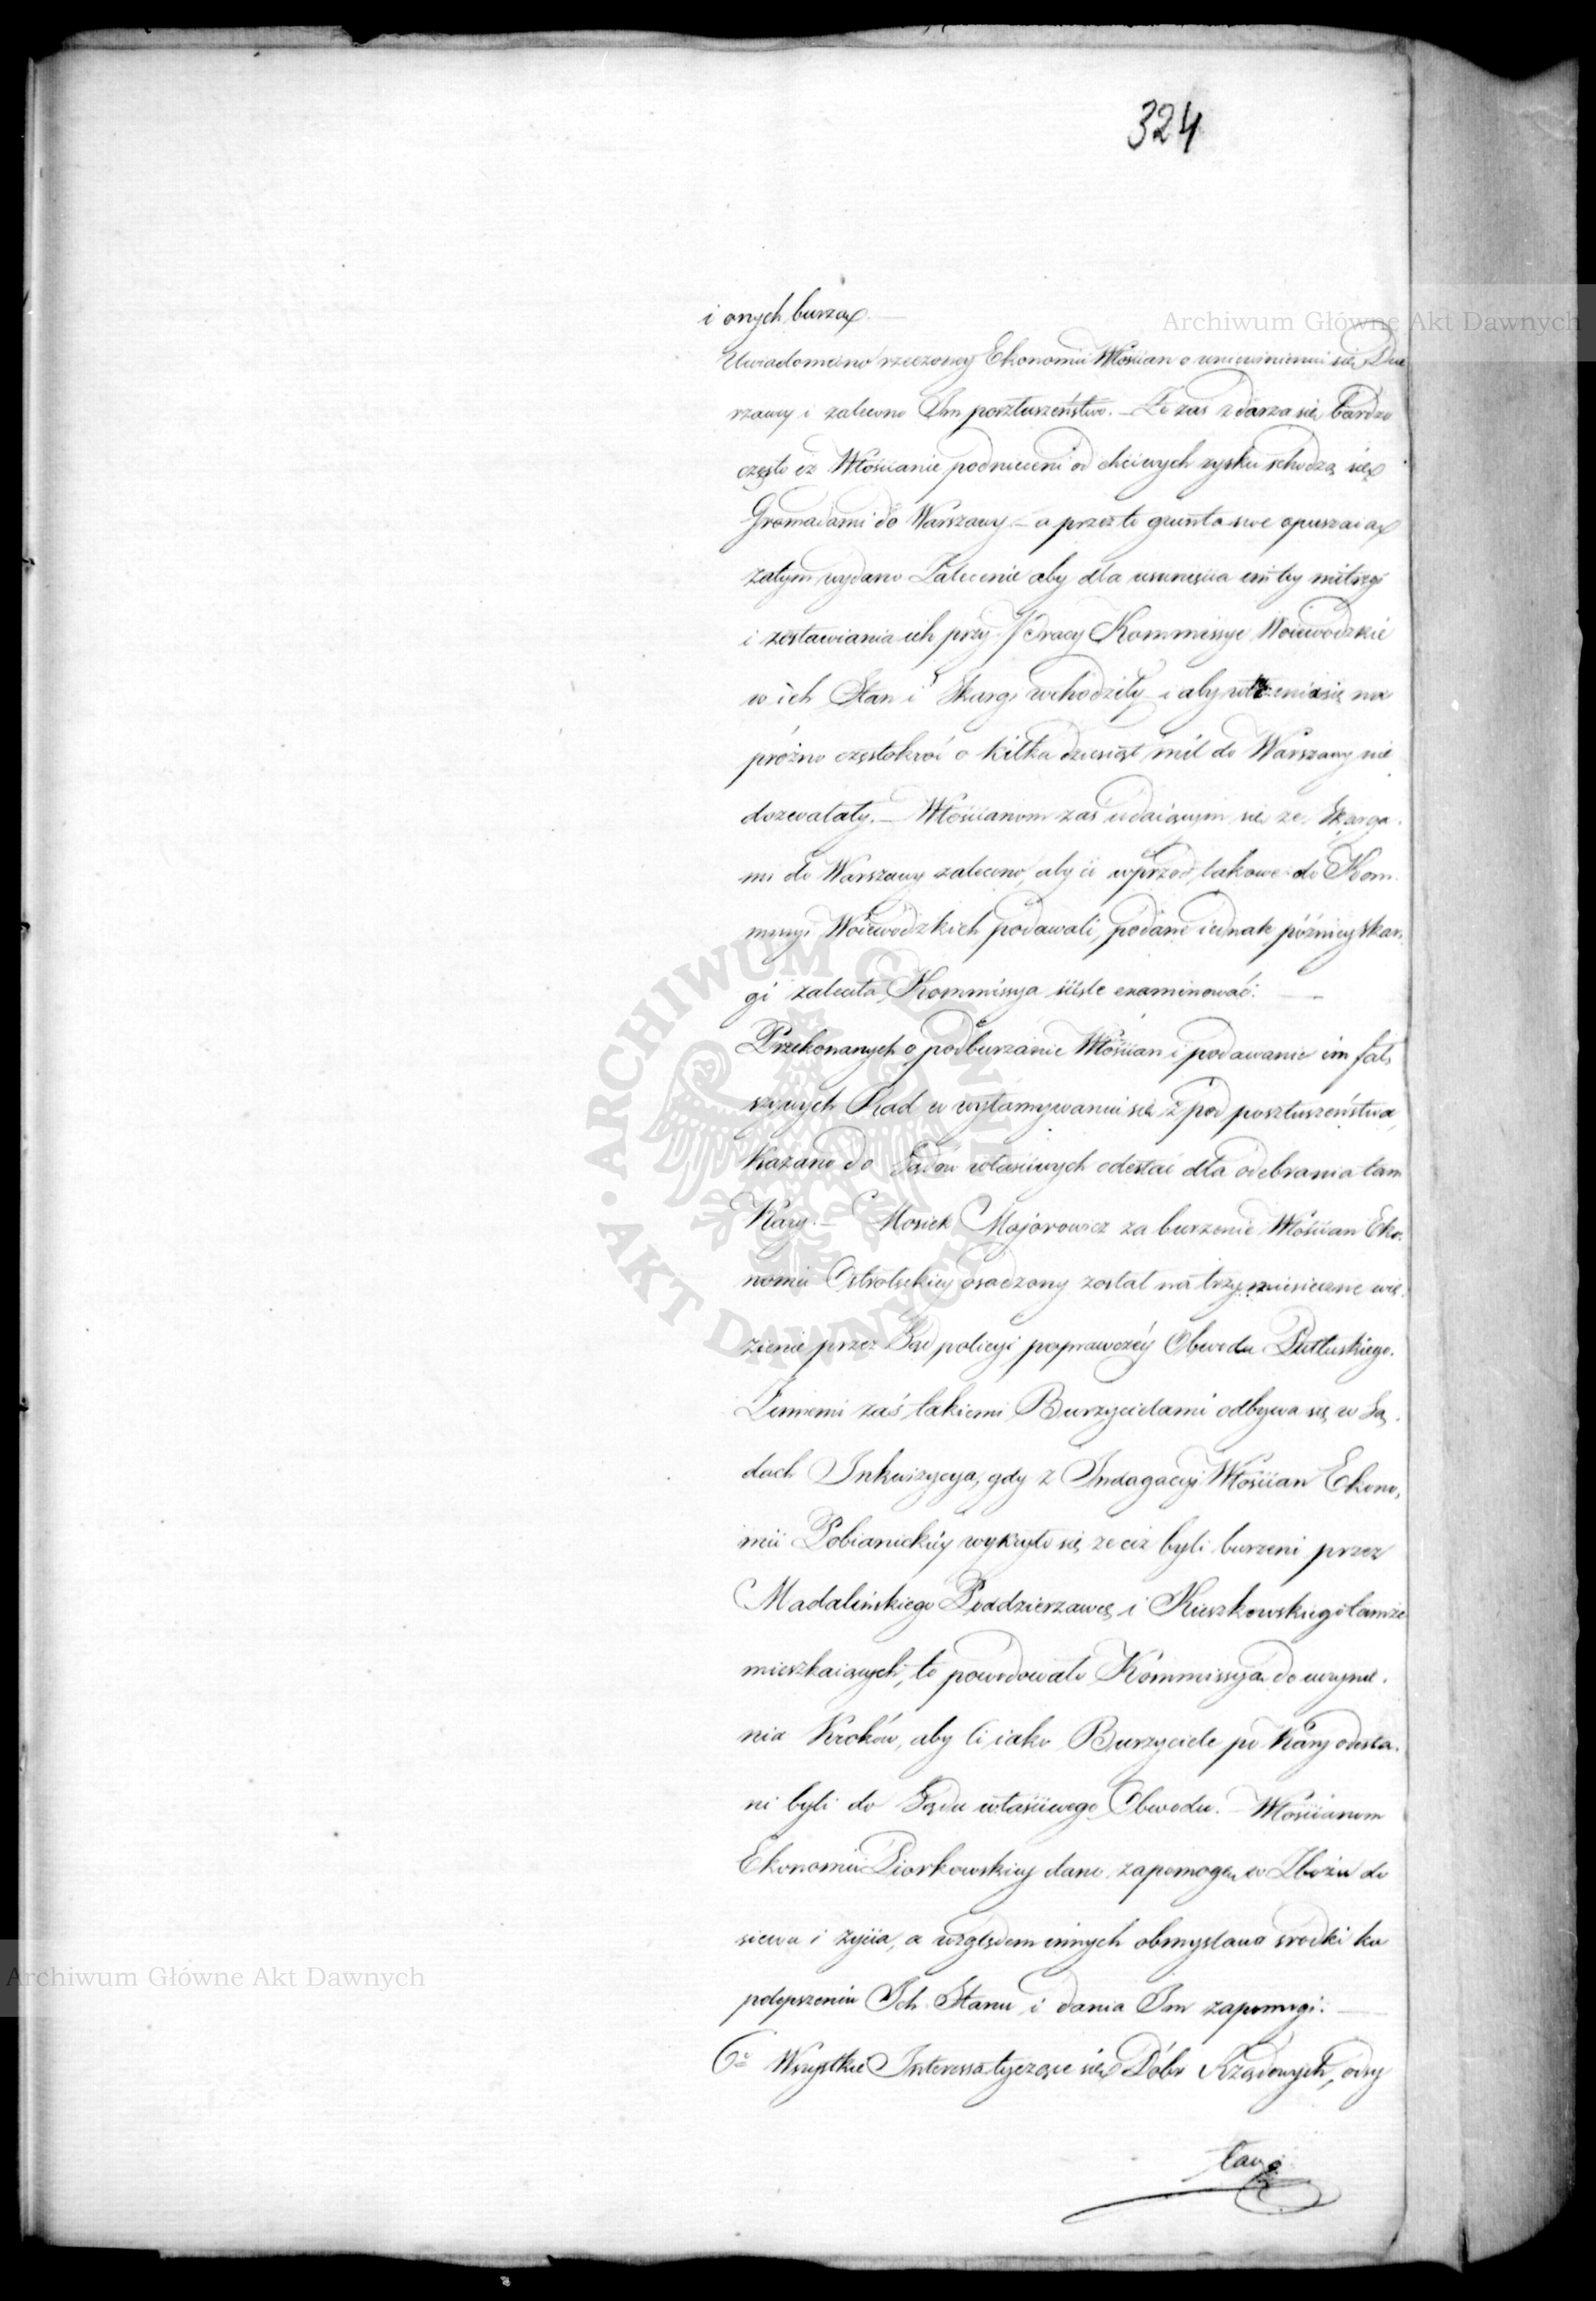 324
i onych burzą. —
Uwiadomiono rzeczonej Ekonomii Włościan o uniewinnieniu się Dzie
rzawcy i zalecono Im posztuszeństwo. — Że zaś zdarza się bardzo
często iż Włościanie podnieceni od chciwych zysku schodzą się
Gromadami do Warszawy — a przez to grunta swe opuszczaią
zatym wydano Zalecenie aby dla usunięcia im tey mitręgi
i zostawiania ich przy Pracy Kommissye Woiewodzkie
w ich Stan i Skargi wchodziły i aby się na
próżno częstokroć o kilka dziesiąt mil do Warszawy nie
dozwalały. — Włościanom zaś udaiącym się ze Skarga.
mi do Warszawy zalecono, aby ci wprzód takowe do Kom.
missyi Woiewodzkich podawali, podane iednak późniey skar,
gi zaleciła Kommissya ściśle examinować. —
Przekonanych o podburzanie Włościan i podawanie im fał,
szywych Rad w wyłamywaniu się z pod posztuszeństwa,
kazano do Sądów właściwych odesłać dla odebrania tam
Kary. — Mosiek Majorowicz za burzenie Włościan Eko.
nomii Ostrołęckiey osadzony został na trzymiesięczne wię.
zienie przez Sąd policyi poprawczéy Obwodu Pułtuskiego.
Z innemi zaś takiemi Burzycielami odbywa się w Są.
dach Inkwizycya, gdy z Indagacyi Włościan Ekono,
mii Pobianickiéy wykryło się że ciż byli burzeni przez
Madalińskiego Poddzierzawcę i Kieszkowskiego tamże
mieszkaiących, to powodowało Kommissyą do uczynie.
nia Kroków, aby Ci iako Burzyciele po Karę odesła.
ni byli do Sądu właściwego Obwodu. — Włościanom
Ekonomii Piorkowskiey dano zapomogę w Zbożu do
siewu i życia, a względem innych obmyślano srodki ku
polepszeniu Ich Stanu i dania Im zapomogi. —
6o Wszystkie Interessa tyczące się Dóbr Rządowych, odsy
łaią
Archiwum Główne Akt Dawnych
Archiwum Główne Akt Dawnych
ARCHIWUM GŁÓWNE · AKT DAWNYCH ·